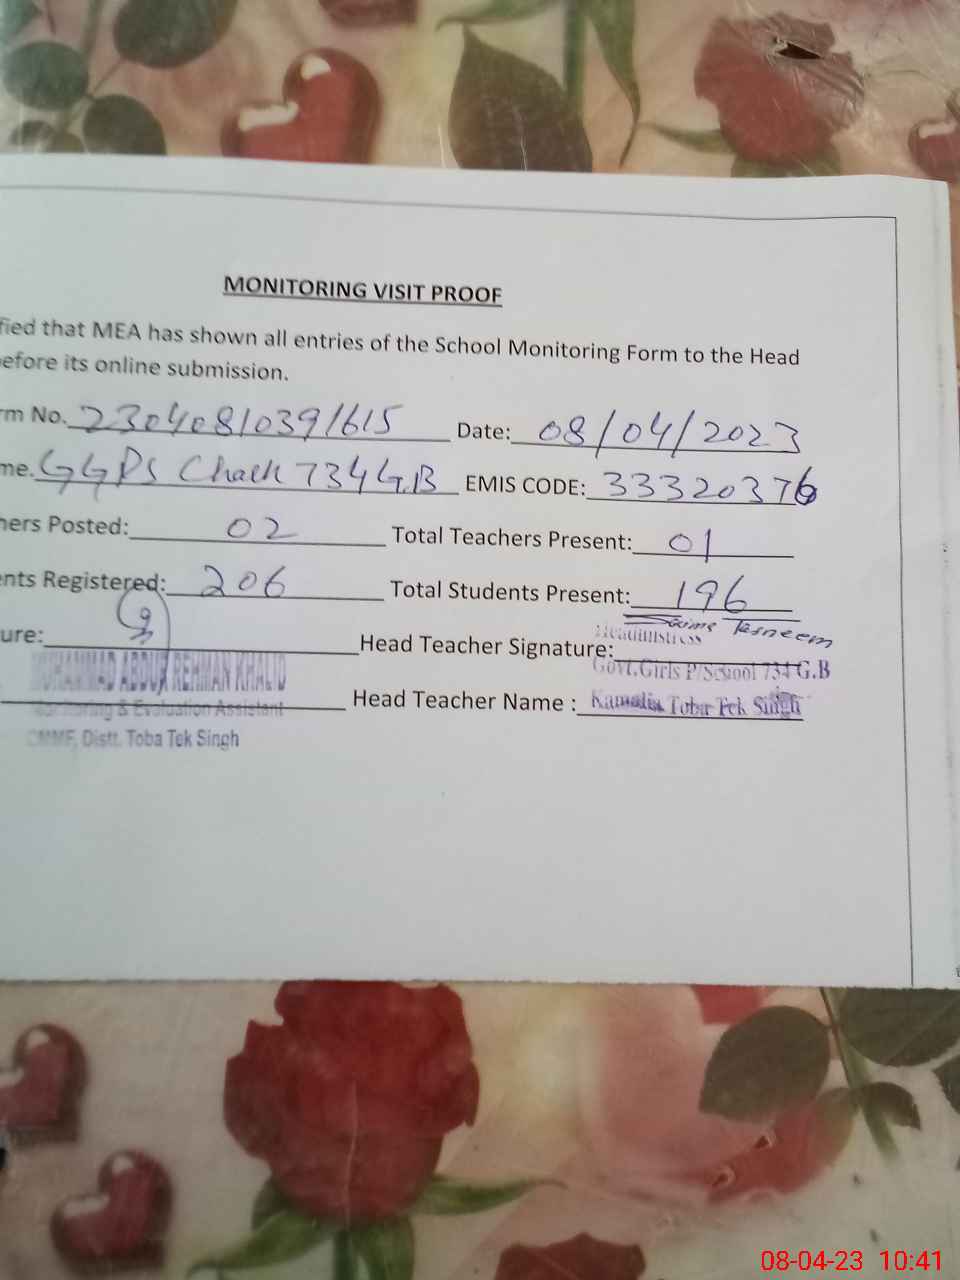 MONITORING VISIT PROOF
fied that MEA has shown all entries of the School Monitoring Form to the Head
efore its online submission.
rm No. 23040810391615 Date: 08/04/2023
me. GGPS Chak 734 G.B EMIS CODE: 33320376
hers Posted: 02 Total Teachers Present: 01
ents Registered: 206 Total Students Present: 196
Tasneem
ure: Head Teacher Signature: Headmistress
MUHAMMAD ABDUR REHMAN KHALID Govt.Girls P/School 734 G.B
Monitoring & Evaluation Assistant Head Teacher Name : Kamalia Toba Tek Singh
CMMF, Distt. Toba Tek Singh
08-04-23 10:41